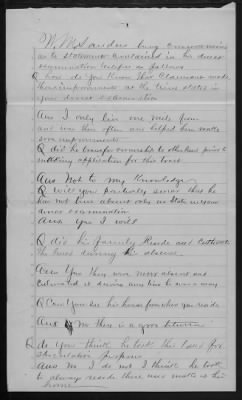 W. M. Sanders being
as to statements contained in his direct
examination testifies as follows
Q how do you Know this Claimant made
these improvements at the time stated in
your direct examination
Ans I only live one mile from
and was there often and helped him make
some improvements
Q did he transfer ownership to other land prior to
making application for this tract
Ans Not to my Knowledge
Q Will you positively swear that he
has not done
direct examination
Ans Yes I will
Q did his family Reside and Cultivate
the land during his absence
Ans Yes They were never absent and
Cultivated it during
Q Can you see his house from where you reside
Ans No there is a grove between
Q do You think he took this land for
speculation purpose
Ans No I do not I think he took
to always reside there and make it his
home